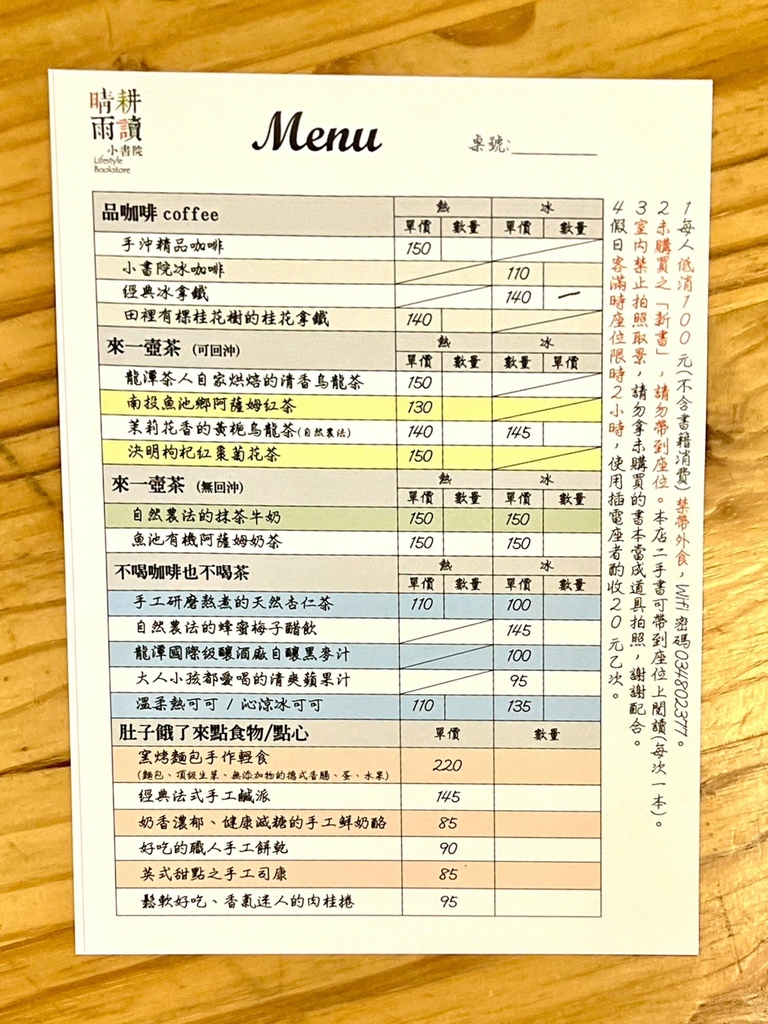 晴耕
雨讀
小書院
Lifestyle
Bookstore
Menu
桌號:
品咖啡 coffee 熱 冰
單價 數量 單價 數量
手沖精品咖啡 150
小書院冰咖啡 110
經典冰拿鐵 140 一
田裡有棵桂花樹的桂花拿鐵 140
來一壺茶 (可回沖) 熱 冰
單價 數量 數量 單價
龍潭茶人自家烘焙的清香烏龍茶 150
南投魚池鄉阿薩姆紅茶 130
茉莉花香的黃梔烏龍茶(自然農法) 140 145
決明枸杞紅棗菊花茶 150
來一壺茶 (無回沖) 熱 冰
單價 數量 單價 數量
自然農法的抹茶牛奶 150 150
魚池有機阿薩姆奶茶 150 150
不喝咖啡也不喝茶 熱 冰
單價 數量 單價 數量
手工研磨熬煮的天然杏仁茶 110 100
自然農法的蜂蜜梅子醋飲 145
龍潭國際級釀酒廠自釀黑麥汁 100
大人小孩都愛喝的清爽蘋果汁 95
溫柔熱可可 / 沁涼冰可可 110 135
肚子餓了來點食物/點心 單價 數量
窯烤麵包手作輕食 220
(麵包、頂級生菜、無添加物的德式香腸、蛋、水果)
經典法式手工鹹派 145
奶香濃郁、健康減糖的手工鮮奶酪 85
好吃的職人手工餅乾 90
英式甜點之手工司康 85
鬆軟好吃、香氣迷人的肉桂捲 95
1 每人低消100元(不含書籍消費)禁帶外食，Wifi 密碼034802377。
2 未購買之「新書」，請勿帶到座位。本店二手書可帶到座位上閱讀(每次一本)。
3 室內禁止拍照取景，請勿拿未購買的書本當成道具拍照，謝謝配合。
4 假日客滿時座位限時2小時，使用插電座者酌收20元乙次。